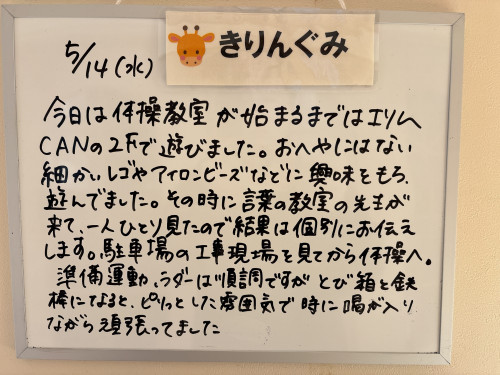 きりんぐみ
5/14(水)
今日は体操教室が始まるまではエリム
CANの2Fで遊びました。おへやにはない
細かいレゴやアイロンビーズなどに興味をもち、
遊んでました。その時に言葉の教室の先生が
来て、一人ひとり見たので結果は個別にお伝え
します。駐車場の工事現場を見てから体操へ。
準備運動、ラダーは順調ですがとび箱と鉄
棒になると、ピリッとした雰囲気で時に喝が入り
ながら頑張ってました